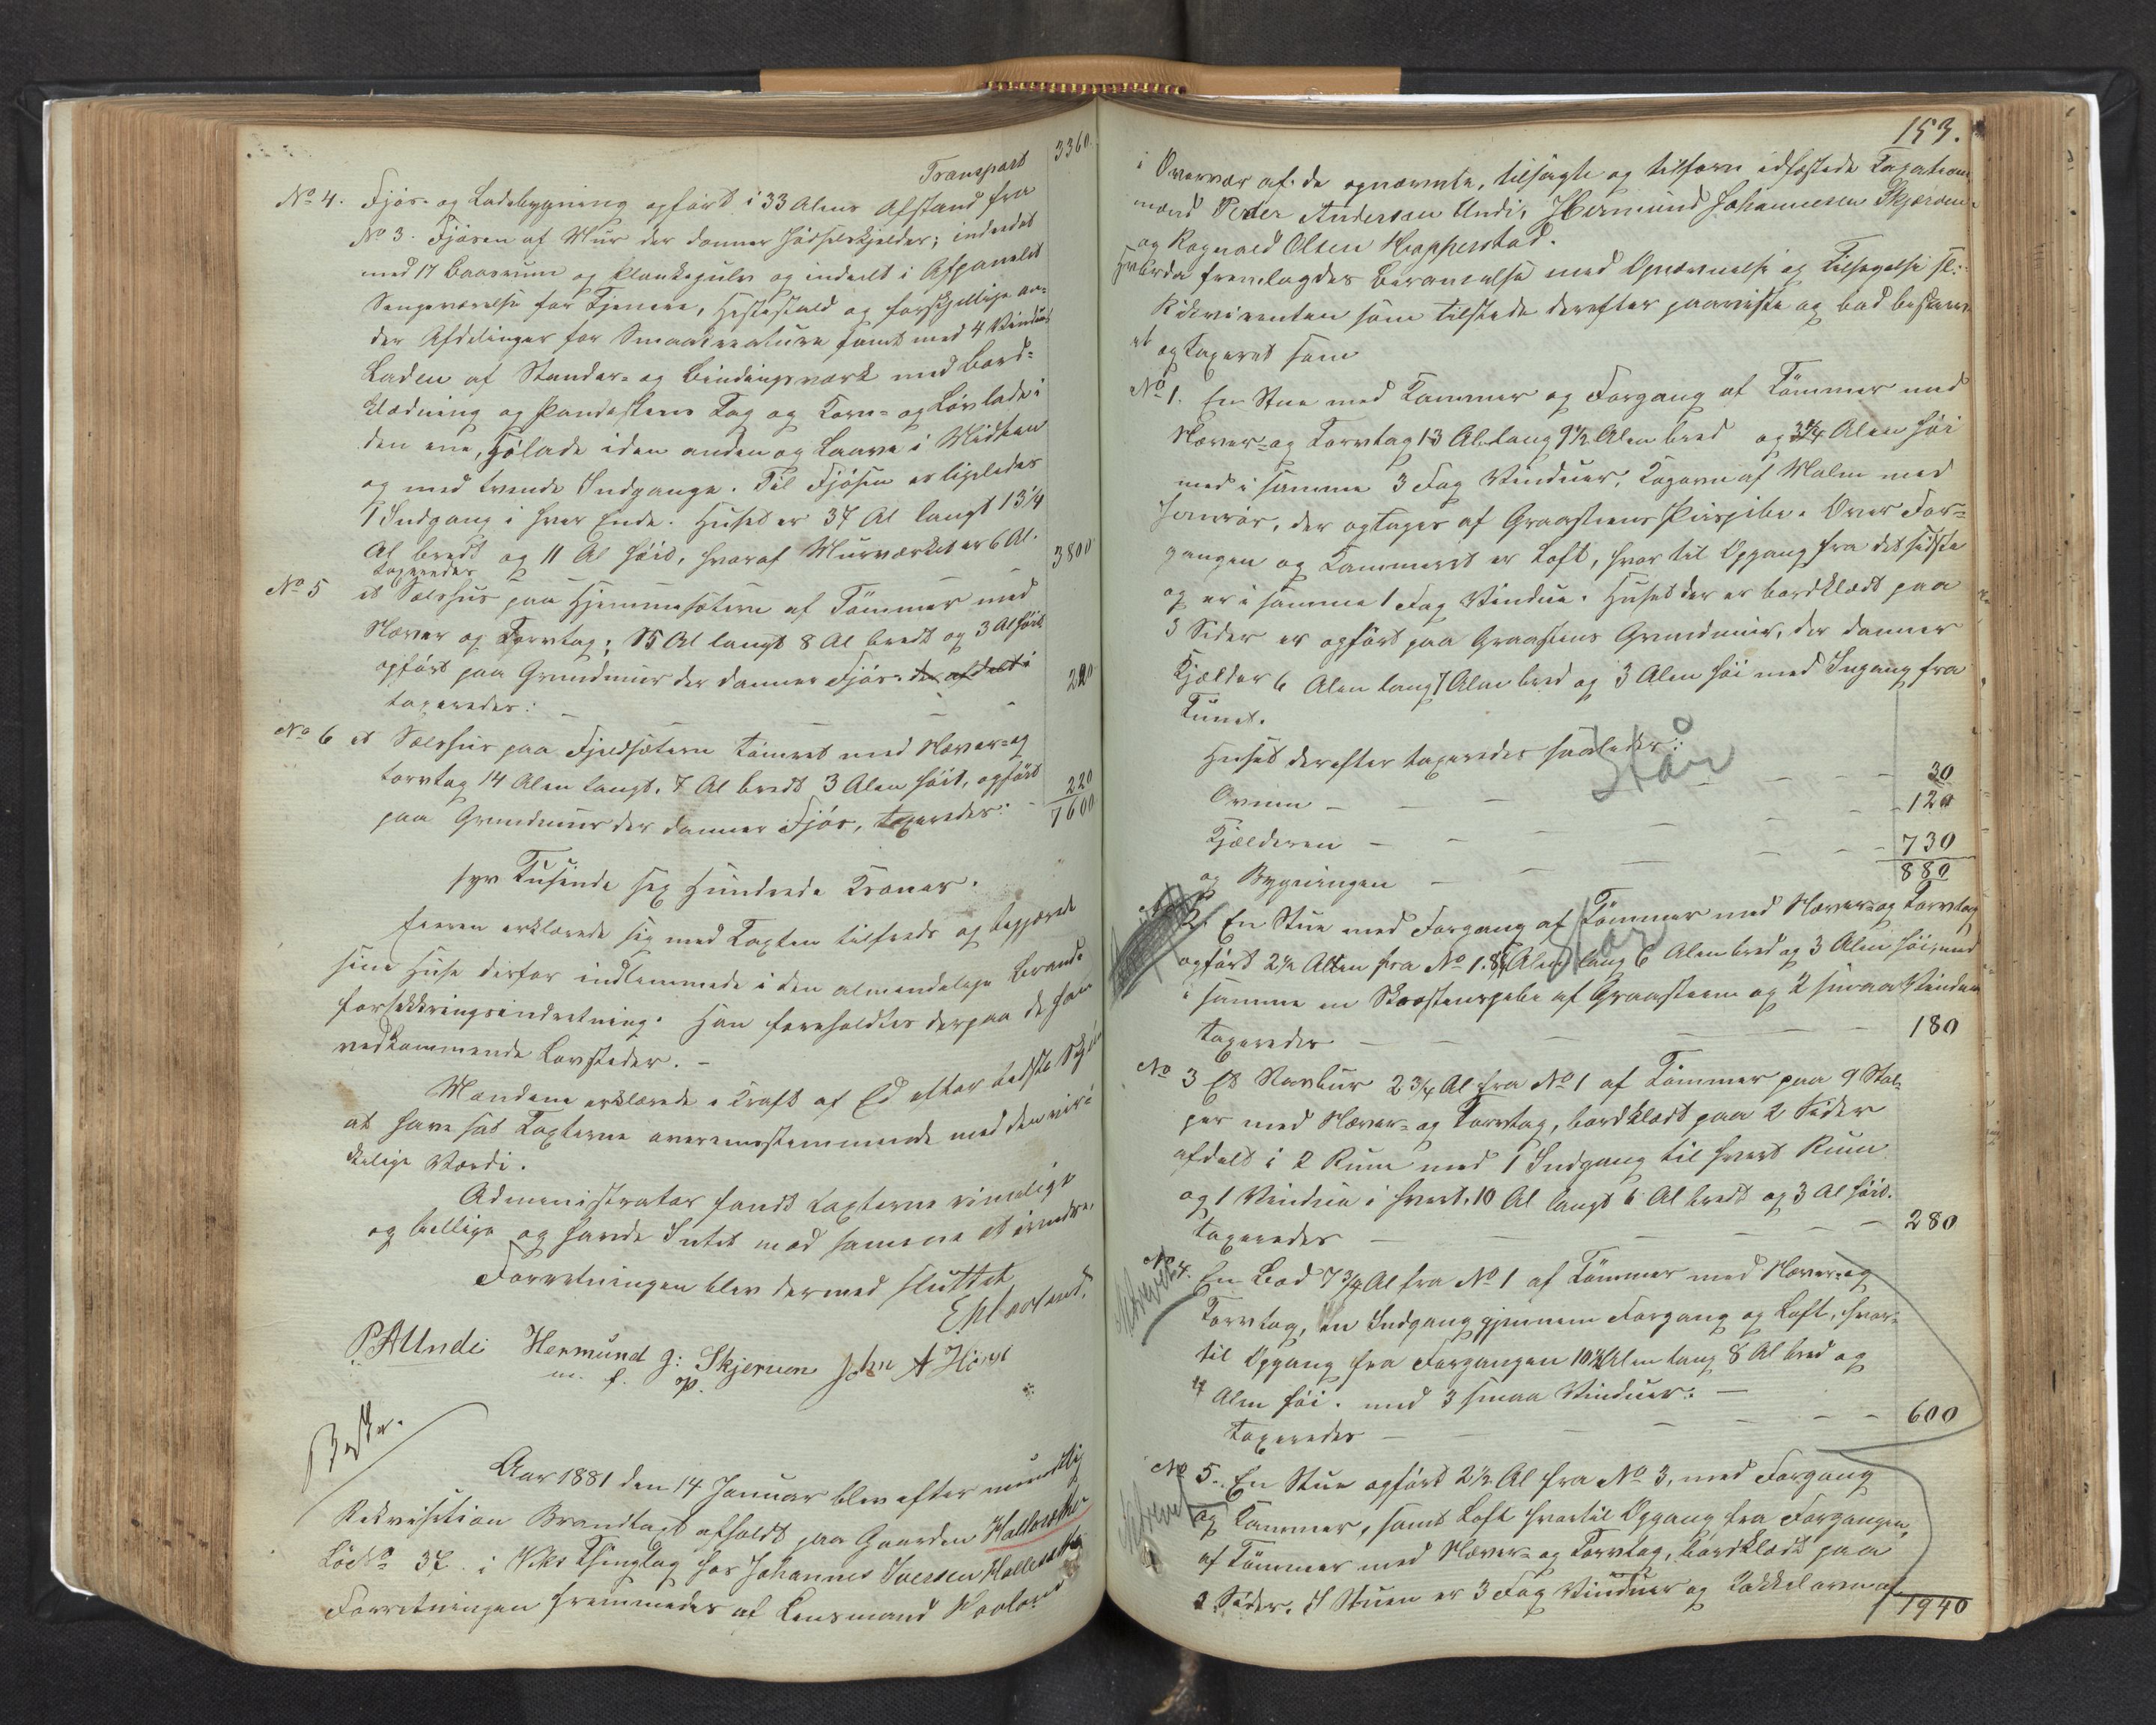 Transport 3360.
No 4. Fjøs- og Ladebygning opført i 33 Alens Afstand fra
No 3. Fjøsen af Muur der danner Gjødselskjelder; inredet
med 17 Baasrum og Plankegulv og inddelt i Afpanelet
Sengeværelse for Tjenere, Hestestald og forskjellige an-
dre Afdelinger for Smaakreature samt med 4 Vinduer
Laden af Stander- og Bindingsværk med Bord-
klædning og Pandestens Tag og Korn- og Løvlade i
den ene, Hølade i den anden og Laave i Midten
og med tvende Indgange. Til Fjøsen er ligeledes
1 Indgang i hver Ende. Huset er 37 Al langt 13 1/4
Al bredt og 11 Al høit, hvoraf Murværket er 6 Al.
taxeredes 3800
No 5 et Selshus paa Hjemmesæteren af Tømmer med
Næver og Torvtag; 15 Al langt 8 Al bredt og 3 Al høit
opført paa Grundmuur der danner Fjøs. der afdelt i
taxeredes: 220
No 6 et Selshus paa Fjeldsæteren tømret med Næver- og
torvtag 14 Alen langt, 7 Al bredt 3 Alen høit, opført
paa Grundmuur der danner Fjøs, taxeredes: 220
7600
syv Tusinde sex Hundrede Kroner.
Eieren erklærede sig med Taxten tilfreds og begjærede
sine Huse derfor indlemmede i den almindelige Brand-
forsikringsindretning. Han foreholdtes derpaa de ham
vedkommende Lovsteder. -
Mændene erklærede i Kraft af Ed efter bedste Skjøn
at have sat Taxterne overensstemmende med den vir-
kelige Værdi.
Administrator fandt Taxterne rimelige
og billige og havde Intet mod samme at erindre.
Forretningen blev dermed sluttet
E Hooland.
P A Undi Hermund J: Skjerven John A Hove
m. f. P.
Aar 1881 den 14 Januar blev efter mundtlig
Rekvisition Brandtaxt afholdt paa Gaarden Hallersker
Løb No 37 i Viks Thinglag hos Johannes Iversen Hallersker
Forretningen fremmedes af Lensmand Hooland
153.
i Overvær af de opnævnte, tilsagte og tilforn edfæstede Taxations
mænd Peder Andersen Undi, Hermund Johannesen Skjerven
og Ragnald Olsen Hopperstad.
Hvorda fremlagdes Berammelse med Opnævnelse og Tilsigelse sl:
Rekvirenten som tilstede derefter paaviste og bad beskrev
et og taxeret som
No 1. En Stue med Kammer og Forgang af Tømmer med
Næver- og Torvtag 13 Al. lang 9 1/2 Alen bred og 3 3/4 Alen høi
med i samme 3 Fag Vinduer, Kogovn af Malm med
Jernrør, der optages af Graastens Peispibe. Over For-
gangen og Kammeret er Loft, hvor til Opgang fra det sidste
og er i samme 1 Fag Vindue. Huset der er bordklædt paa
3 Sider er opført paa Graastens Grundmuur, der danner
Kjælder 6 Alen lang 7 Alen bred og 3 Alen høi med Ingang fra
Tunet.
Huset derefter taxeredes saaledes:
Står
Ovnen - 30
Kjælderen - 120
og Bygningen - 730
880
2. En Stue med Forgang af Tømmer med Næver- og Torvtag
Står
opført 2 1/2 Alen fra No 1. 8 1/2 Alen lang 6 Alen bred og 3 Alen høi, med
i samme en Skorstenspibe af Graasteen og 2 smaa Vinduer
taxeredes - 180
No 3 Et Stavbur 2 3/4 Al fra No 1 af Tømmer paa 9 Stol-
per med Næver- og Torvtag, bordklædt paa 2 Sider
afdelt i 2 Rum med 1 Indgang til hvert Rum
og 1 Vindue i hvert. 10 Al langt 6 Al bredt og 3 Al høit.
taxeredes - 280
No 4. En Bod 7 3/4 Al fra No 1 af Tømmer med Næver- og
Torvtag, en Indgang gjennem Forgang og Loft, hvor-
til Opgang fra Forgangen 10 1/2 Alen lang 8 Al bred og
4 Alen høi. med 3 smaa Vinduer. -
taxeredes - 600
No 5. En Stue opført 2 1/2 Al fra No 3, med Forgang
og Kammer, samt Loft hvortil Opgang fra Forgangen,
af Tømmer med Næver- og Torvtag, bordklædt paa
2 Sider. I Stuen er 3 Fag Vinduer og Kakkelovn af
1940